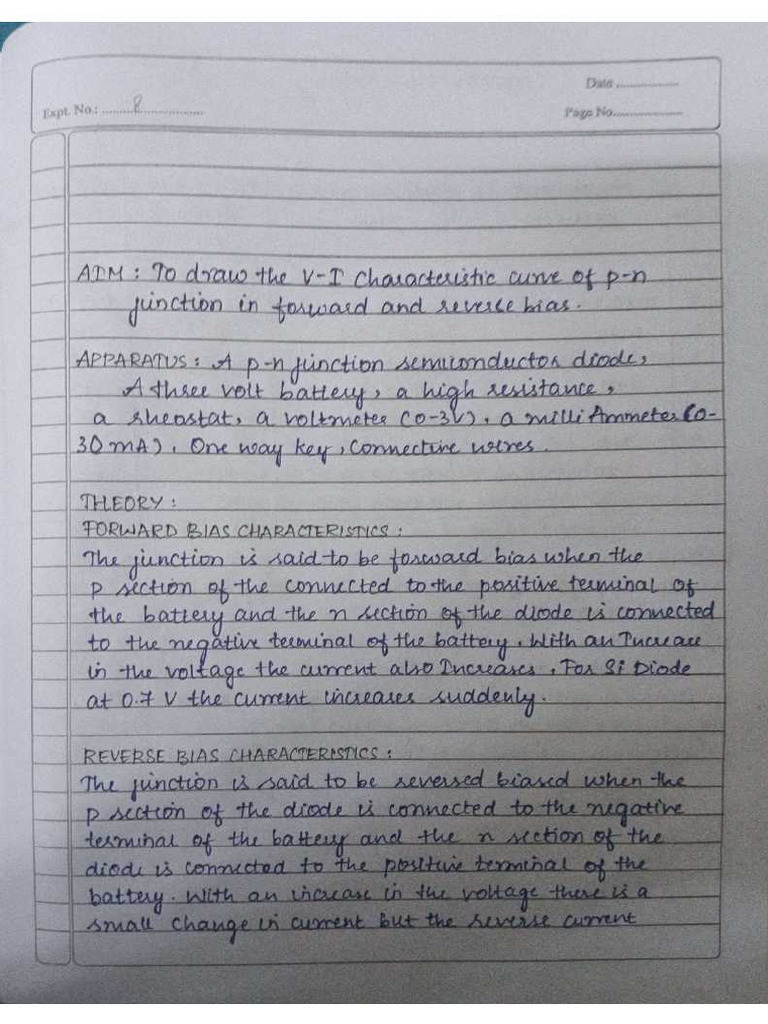 Date ..................
Expt. No.: ........8..................
Page No...................
AIM : To draw the V-I characteristic curve of p-n
junction in forward and reverse bias.
APPARATUS : A p-n junction semiconductor diode,
A three volt battery, a high resistance,
a rheostat, a voltmeter (0-3V), a milli Ammeter (0-
30 mA), One way key, Connective wires.
THEORY :
FORWARD BIAS CHARACTERISTICS :
The junction is said to be forward bias when the
p section of the connected to the positive terminal of
the battery and the n section of the diode is connected
to the negative terminal of the battery. With an Increase
in the voltage the current also Increases, For Si Diode
at 0.7 V the current increases suddenly.
REVERSE BIAS CHARACTERISTICS :
The junction is said to be reversed biased when the
p section of the diode is connected to the negative
terminal of the battery and the n section of the
diode is connected to the positive terminal of the
battery. With an increase in the voltage there is a
small change in current but the reverse current